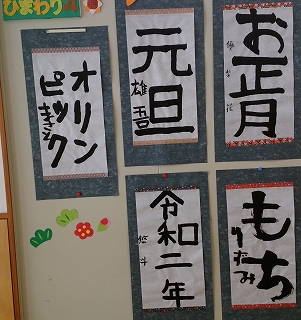 ひまわり2
お正月
元旦
雄吾
オリン
ピック
まさと
もち
令和二年
悠斗